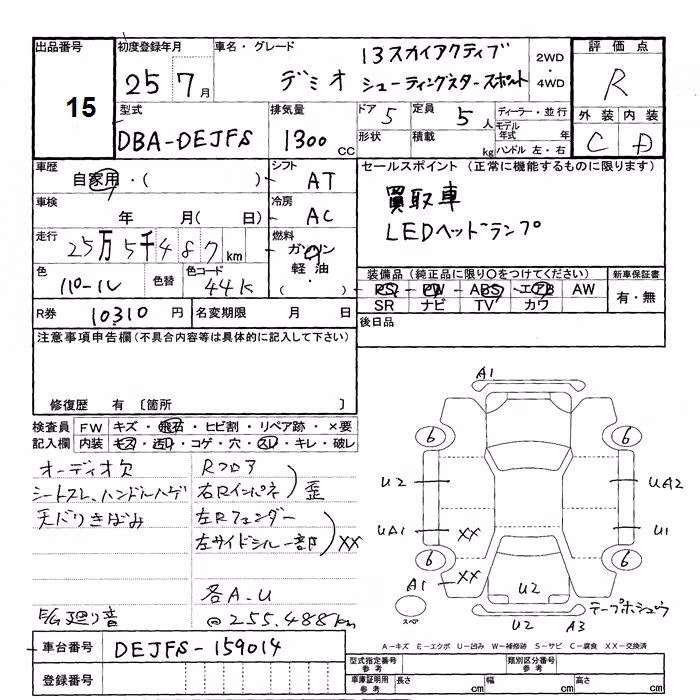 出品番号
15
初度登録年月
25 7月
車名・グレード
デミオ
13スカイアクティブ
シューティングスタースポルト
2WD・4WD
評価点
R
型式
DBA-DEJFS
排気量
1300 cc
ドア 5
定員 5人
形状
積載 kg
ディーラー・並行
モデル年式 年
ハンドル 左・右
外装 内装
C D
車歴
自家用・( )
シフト
AT
セールスポイント (正常に機能するものに限ります)
買取車
LEDヘッドランプ
車検
年 月( 日)
冷房
AC
走行
25万5千487km
燃料
ガソリン
軽・油
( )
色
パール
色替
色コード
44K
装備品 (純正品に限り○をつけてください)
PS PW ABS エアB AW
SR ナビ TV カワ
新車保証書
有・無
R券 10310円
名変期限 月 日
後日品
注意事項申告欄(不具合内容等は具体的に記入して下さい)
修復歴 有 [箇所 ]
検査員記入欄
FW キズ・飛石・ヒビ割・リペア跡・×要
内装 キズ・汚れ・コゲ・穴・スレ・キレ・破レ
オーディオ欠
シートスレ、ハンドルハゲ
天バリきばみ
E/G廻り音
Rフロア
右Rインパネ 歪
左Rフェンダー
左サイドシル一部 XX
各A.U
@255.488km
A1
6 6
U2 UA2
UA1 XX U1
6 6
A1 XX
U2
スペア
U2 A3
テープホシュウ
A-キズ E-エクボ U-凹み W-補修跡 S-サビ C-腐食 XX-交換済
車台番号 DEJFS-159014
登録番号
型式指定番号 参考
類別区分番号 参考
車庫証明用 参考
長さ cm
幅 cm
高さ cm